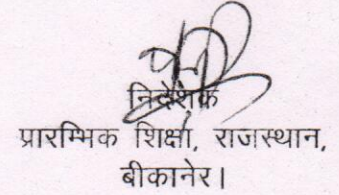 निदेशक
प्रारम्भिक शिक्षा, राजस्थान,
बीकानेर।